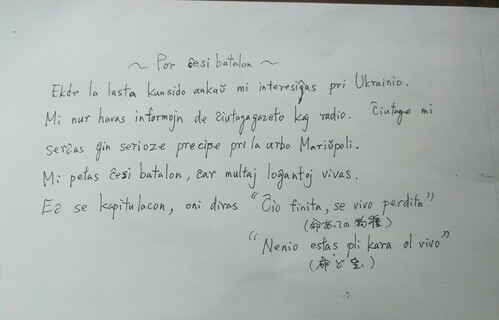 ～ Por ĉesi batalon ～
Ekde la lasta kunsido ankaŭ mi interesiĝas pri Ukrainio.
Mi nur havas informojn de ĉiutagagazeto kaj radio. Ĉiutage mi
serĉas ĝin serioze precipe pri la urbo Mariŭpoli.
Mi petas ĉesi batalon, ĉar multaj loĝantoj vivas.
Eĉ se kapitulacon, oni diras "Ĉio finita, se vivo perdita"
(命あっての物種)
"Nenio estas pli kara ol vivo"
(命ど宝.)